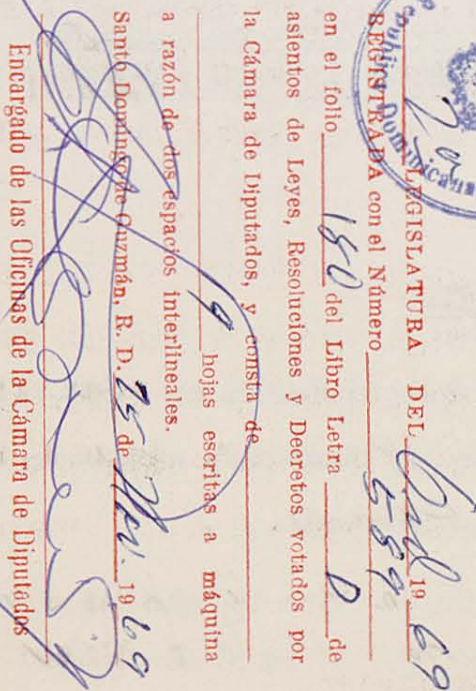 2a LEGISLATURA DEL Ord 19 69
REGISTRADA con el Número 589
en el folio 180 del Libro Letra D de
asientos de Leyes, Resoluciones y Decretos votados por
la Cámara de Diputados, y consta de
9 hojas escritas a máquina
a razón de dos espacios interlineales.
Santo Domingo de Guzmán, R. D. 25 de Nov. 19 69
Encargado de las Oficinas de la Cámara de Diputados
Dominicana